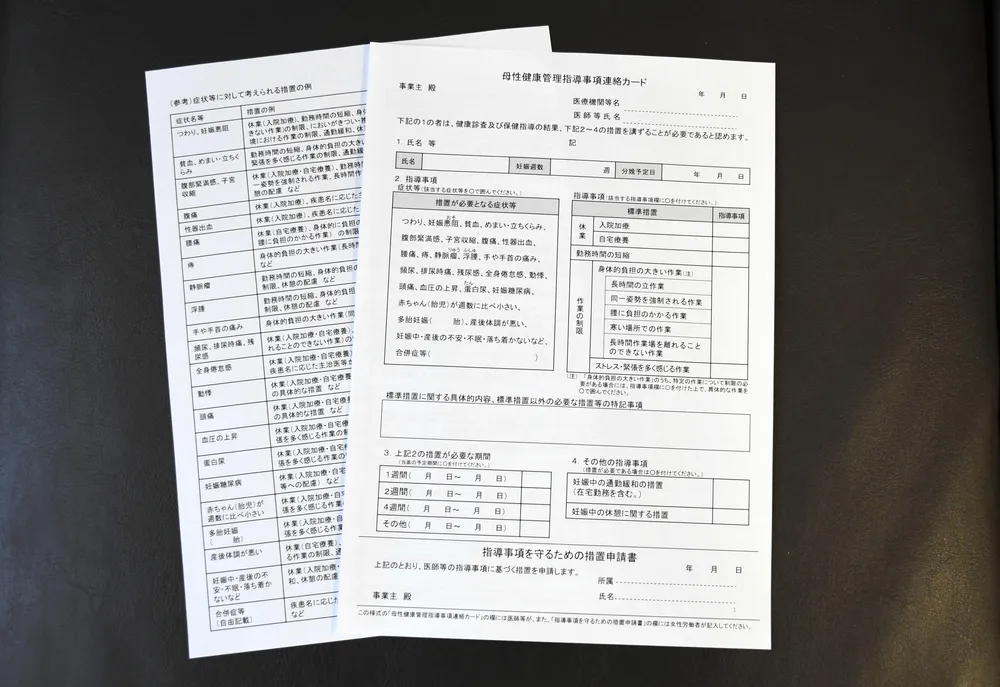 (参考)症状等に対して考えられる措置の例
症状名等
措置の例
つわり、妊娠悪阻
休業(入院加療)、勤務時間の短縮、身
きない作業)の制限、においがきつい・
境における作業の制限、通勤緩和、休
貧血、めまい・立ちくらみ
勤務時間の短縮、身体的負担の大き
緊張を多く感じる作業の制限、通勤緩
腹部緊満感、子宮収縮
休業(入院加療・自宅療養)、勤務時
一姿勢を強制される作業、長時間作
憩の配慮 など
腹痛
休業(入院加療)、疾患名に応じた
性器出血
休業(入院加療)、疾患名に応じた
腰痛
休業(自宅療養)、身体的に負担の
腰に負担のかかる作業) の制限
痔
身体的負担の大きい作業(長時
など
静脈瘤
勤務時間の短縮、身体的負担の
制限、休憩の配慮 など
浮腫
勤務時間の短縮、身体的負担の
制限、休憩の配慮 など
手や手首の痛み
身体的負担の大きい作業(同
頻尿、排尿時痛、残尿感
休業(入院加療・自宅療養)、
れることのできない作業)の
全身倦怠感
休業(入院加療・自宅療
疾患名に応じた主治医等か
動悸
休業(入院加療・自宅療
の具体的な措置 など
頭痛
休業(入院加療・自宅療
の具体的な措置 など
血圧の上昇
休業(入院加療・自宅療
張を多く感じる作業の制
蛋白尿
休業(入院加療・自宅
張を多く感じる作業の
妊娠糖尿病
休業(入院加療・自宅
等への配慮) など
赤ちゃん(胎児)が週数に比べ小さい
休業(入院加療・自宅
張を多く感じる作業
多胎妊娠
( 胎)
休業(入院加療・自宅
張を多く感じる作業
産後体調が悪い
休業(自宅療養)、
る作業の制限、通
妊娠中・産後の不安・不眠・落ち着かないなど
休業(入院加療・
和、休憩の配慮
合併症等
(自由記載)
疾患名に応じた
など
母性健康管理指導事項連絡カード
年 月 日
事業主 殿
医療機関等名
医師等氏名
下記の1の者は、健康診査及び保健指導の結果、下記2~4の措置を講ずることが必要であると認めます。
記
1. 氏名 等
氏名 妊娠週数 週 分娩予定日 年 月 日
2. 指導事項
症状等(該当する症状等を○で囲んでください。)
措置が必要となる症状等
つわり、妊娠悪阻、貧血、めまい・立ちくらみ、
おそ
腹部緊満感、子宮収縮、腹痛、性器出血、
腰痛、痔、静脈瘤、浮腫、手や手首の痛み、
りゅう ふしゅ
頻尿、排尿時痛、残尿感、全身倦怠感、動悸、
頭痛、血圧の上昇、蛋白尿、妊娠糖尿病、
たん
赤ちゃん(胎児)が週数に比べ小さい、
多胎妊娠( 胎)、産後体調が悪い、
妊娠中・産後の不安・不眠・落ち着かないなど、
合併症等( )
指導事項(該当する指導事項欄に○を付けてください。)
標準措置 指導事項
休業
入院加療
自宅療養
勤務時間の短縮
作業の制限
身体的負担の大きい作業(注)
長時間の立作業
同一姿勢を強制される作業
腰に負担のかかる作業
寒い場所での作業
長時間作業場を離れることのできない作業
ストレス・緊張を多く感じる作業
(注) 「身体的負担の大きい作業」のうち、特定の作業について制限の必
要がある場合には、指導事項欄に○を付けた上で、具体的な作業を
○で囲んでください。
標準措置に関する具体的内容、標準措置以外の必要な措置等の特記事項
3. 上記2の措置が必要な期間
(当面の予定期間に○を付けてください。)
1週間( 月 日~ 月 日)
2週間( 月 日~ 月 日)
4週間( 月 日~ 月 日)
その他( 月 日~ 月 日)
4. その他の指導事項
(措置が必要である場合は○を付けてください。)
妊娠中の通勤緩和の措置
(在宅勤務を含む。)
妊娠中の休憩に関する措置
指導事項を守るための措置申請書
年 月 日
上記のとおり、医師等の指導事項に基づく措置を申請します。
所属
氏名
事業主 殿
1
この様式の「母性健康管理指導事項連絡カード」の欄には医師等が、また、「指導事項を守るための措置申請書」の欄には女性労働者が記入してください。